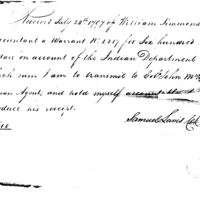 Received July 28th 1797 of William Simmons
countant a Warrant No. 2217 for Six hundred
lars on account of the Indian Department
ich sum I am to transmit to Colo John
ian Agent, and hold myself accountable to
oduce his receipt.
Samuel Lewis